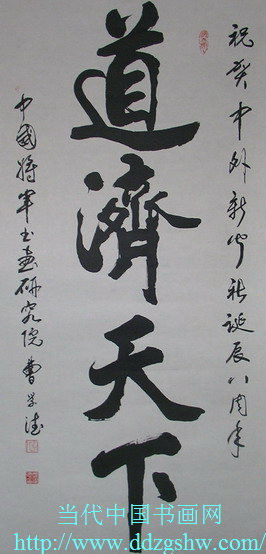 祝贺中外新闻社诞辰八周年
道濟天下
中國将军书画研究院 曹学德
当代中国书画网
http://www.ddzgshw.com/